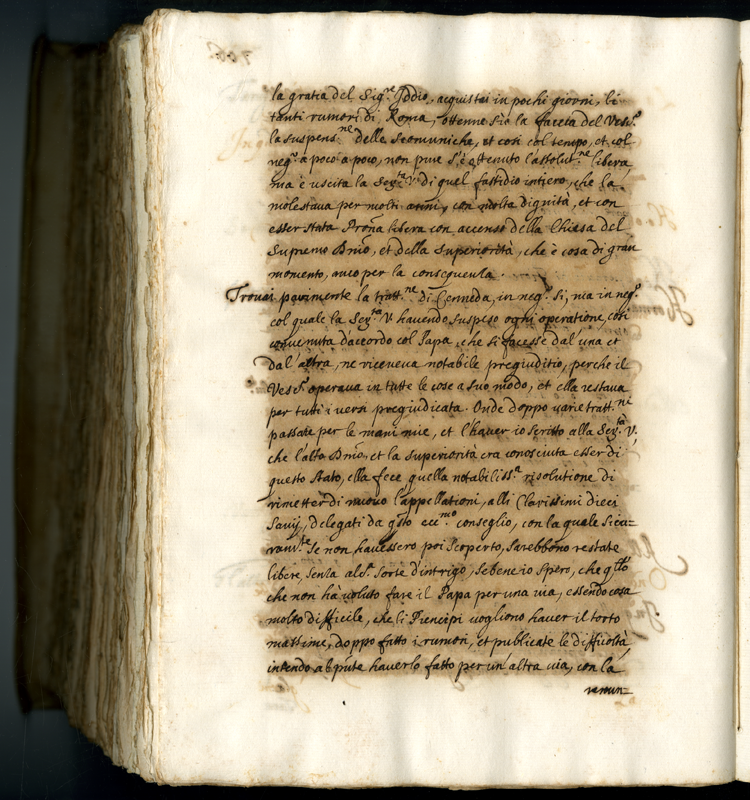 la gratia del Sig.re Iddio, acquistai in pochi giorni, li
tanti rumori di Roma, ottenne sia la faccia del Vesc.o
la suspens.ne delle Scomuniche, et così col tempo, et col
neg.o à poco à poco, non pure s'è ottenuto l'assolut.ne libera,
ma è uscita la Ser.ta V. di quel fastidio intiero, che la
molestava per molti anni, con molta dignità, et con
esser stata libera con della Chiesa del
Supremo Dmo, et della Superiorità, che è cosa di gran
momento, anco per la consequenza.
Trovai parimente la tratt.ne di Ceneda, in neg.o sì, ma in neg.o
col quale la Ser.ta V. havendo suspeso ogni operatione, così
convenuta d'accordo col Papa, che si facesse dal'una et
dal'altra, ne riceveva notabile pregiuditio, perche il
Vesc.o operava in tutte le cose a suo modo, et ella restava
per tutti i versi pregiudicata. Onde doppo varie tratt.ni
passate per le mani mie, et l'haver io scritto alla Ser.tà V.
che l'alto Dmo, et la superiorità era conosciuta esser di
questo Stato, ella fece quella notabiliss.a risolutione di
rimetter di nuovo l'appellationi, alli Clarissimi dieci
Savij, delegati da q'sto ecc.mo conseglio, con la quale sicu=
ram.te se non havessero poi scoperto, sarebbono restate
libere, senza alc.a sorte d'intrigo, sebene io spero, che q'llo
che non hà voluto fare il Papa per una via, essendo cosa
molto difficile, che li Prencipi vogliono haver il torto
massime, doppo fatto i rumori, et publicate le difficoltà,
intendo haverlo fatto per un'altra via, con la
renun=